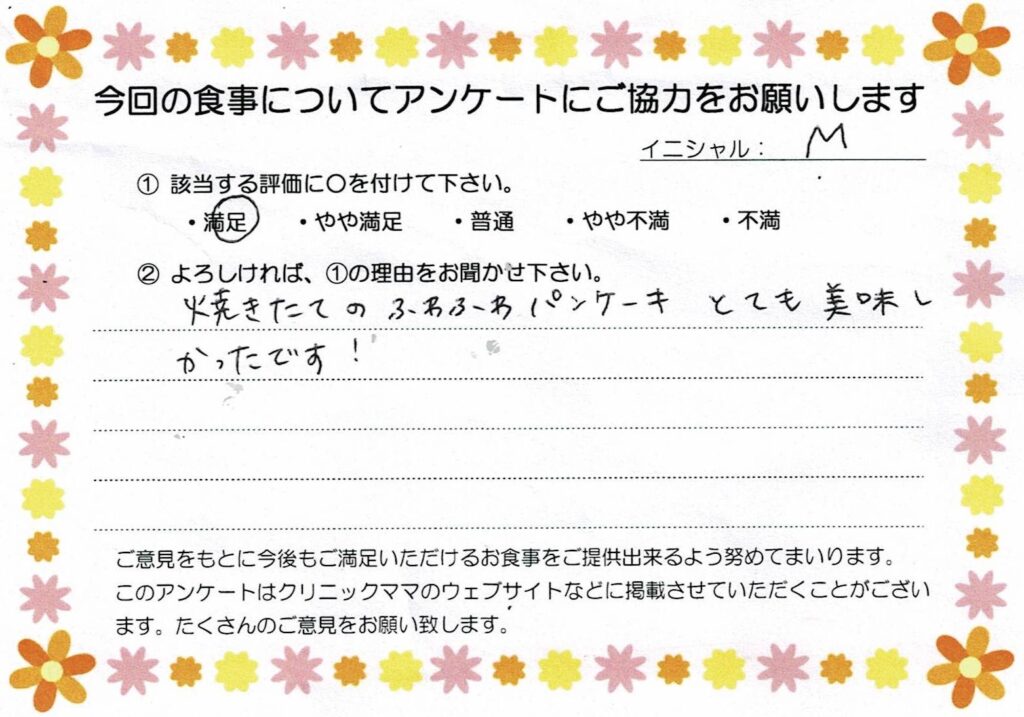 今回の食事についてアンケートにご協力をお願いします
イニシャル： M
① 該当する評価に〇を付けて下さい。
・満足 ・やや満足 ・普通 ・やや不満 ・不満
② よろしければ、①の理由をお聞かせ下さい。
焼きたての ふわふわパンケーキ とても美味し
かったです！
ご意見をもとに今後もご満足いただけるお食事をご提供出来るよう努めてまいります。
このアンケートはクリニックママのウェブサイトなどに掲載させていただくことがござい
ます。たくさんのご意見をお願い致します。